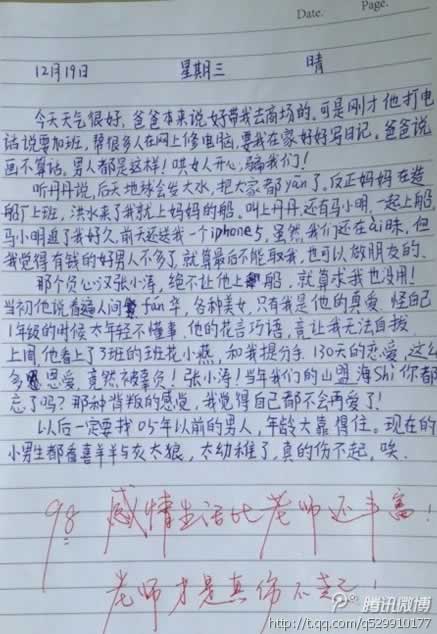 Date.    Page.
12月19日    星期三    晴
今天天气很好，爸爸本来说好带我去商场的，可是刚才他打电
话说要加班，帮很多人在网上修电脑，要我在家好好写日记。爸爸说
画不算话。男人都是这样！哄女人开心，骗我们！
听丹丹说，后天地球会发大水，把大家都yān了，反正妈妈在造
船厂上班，洪水来了我就上妈妈的船。叫上丹丹，还有马小明，一起上船，
马小明追了我好久，前天还送我一个iphone5，虽然我们还在ài昧，但
我觉得有钱的好男人不多了，就算最后不能取我，也可以做朋友的。
那个负心汉张小涛，绝不让他上船，就算求我也没用！
当初他说看遍人间fán华，各种美女，只有我是他的真爱，怪自己
1年级的时候太年轻不懂事，他的花言巧语，竟让我无法自拔
上周他看上了3班的班花小燕，和我提分手，130天的恋爱，这么
多恩爱，竟然被辜负！张小涛！当年我们的山盟海Shì你都
忘了吗？那种背叛的感觉，我觉得自己都不会再爱了！
以后一定要找05年以前的男人，年龄大靠得住。现在的
小男生都看喜羊羊与灰太狼，太幼稚了，真的伤不起，唉．
98 感情生活比老师还丰富！
老师才是真伤不起！
腾讯微博
http://t.qq.com/q529910177